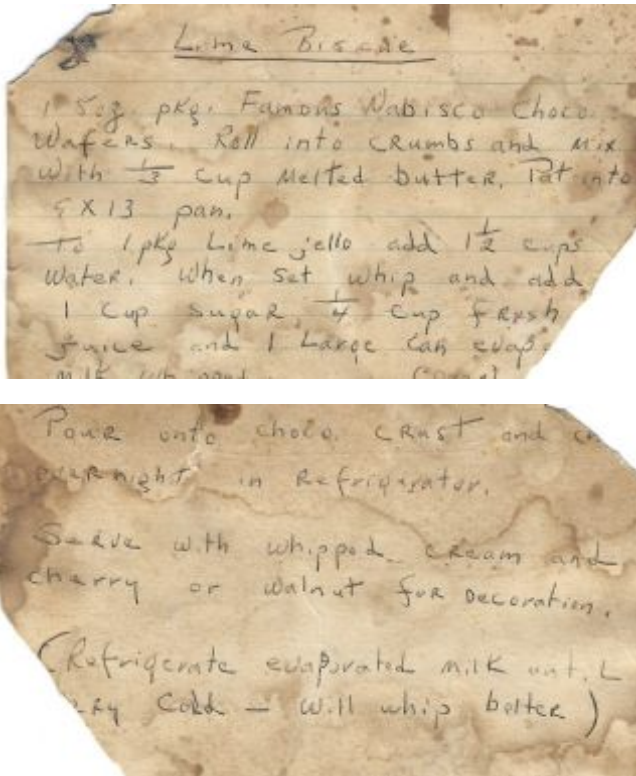 Lime Biscue
1 5oz. pkg. Famous Nabisco Choco.
Wafers. Roll into crumbs and mix
with 1/3 cup melted butter. Pat into
9 X 13 pan.
To 1 pkg Lime jello add 1 1/2 cups
water. When set whip and add
1 cup sugar, 1/4 cup fresh
juice and 1 Large can evap
milk
Pour onto choco. crust and
overnight in Refrigerator.
Serve with whipped cream and
cherry or walnut for decoration.
(Refrigerate evaporated milk until
very cold – will whip better)